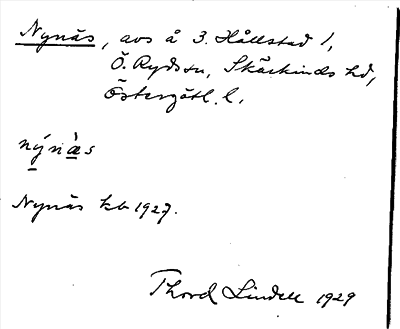 Nynäs, avs å 3. Hållstad 1,
Ö. Ryds sn, Skärkinds hd,
Östergötl. l.
nýnàs
Nynäs kb 1927.
Thord Lindell 1929